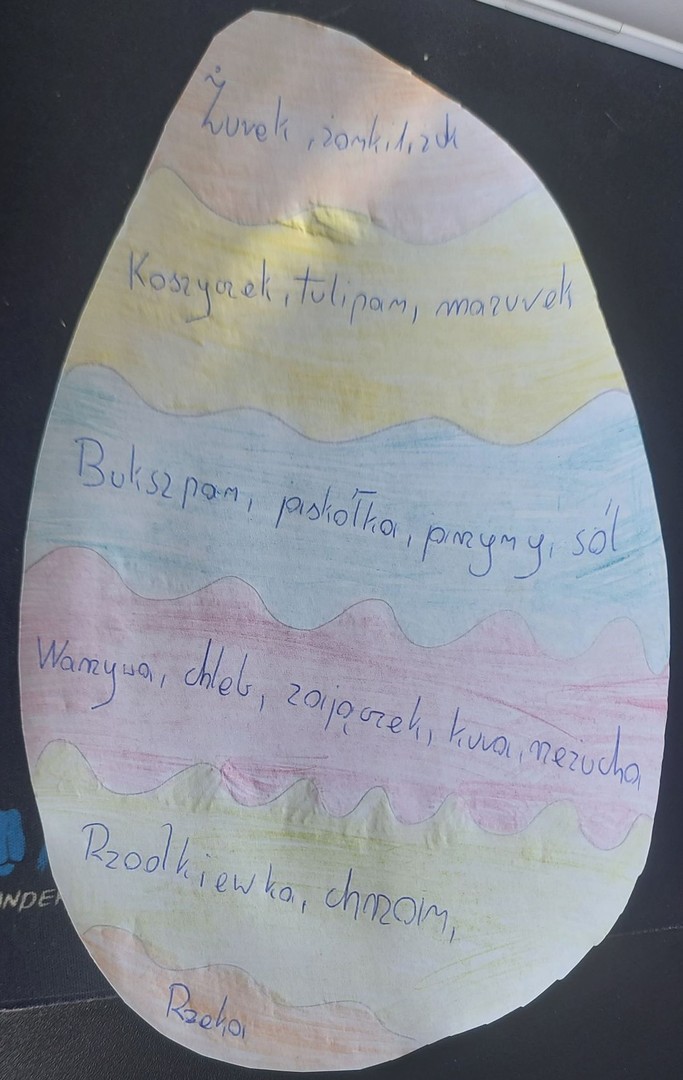 Żurek, żonkil,
Koszyczek, tulipan, mazurek
Bukszpan, jaskółka, sól
Warzywa, chleb, zajączek, kura, rzeżucha
Rzodkiewka, chrzan,
Rzeka